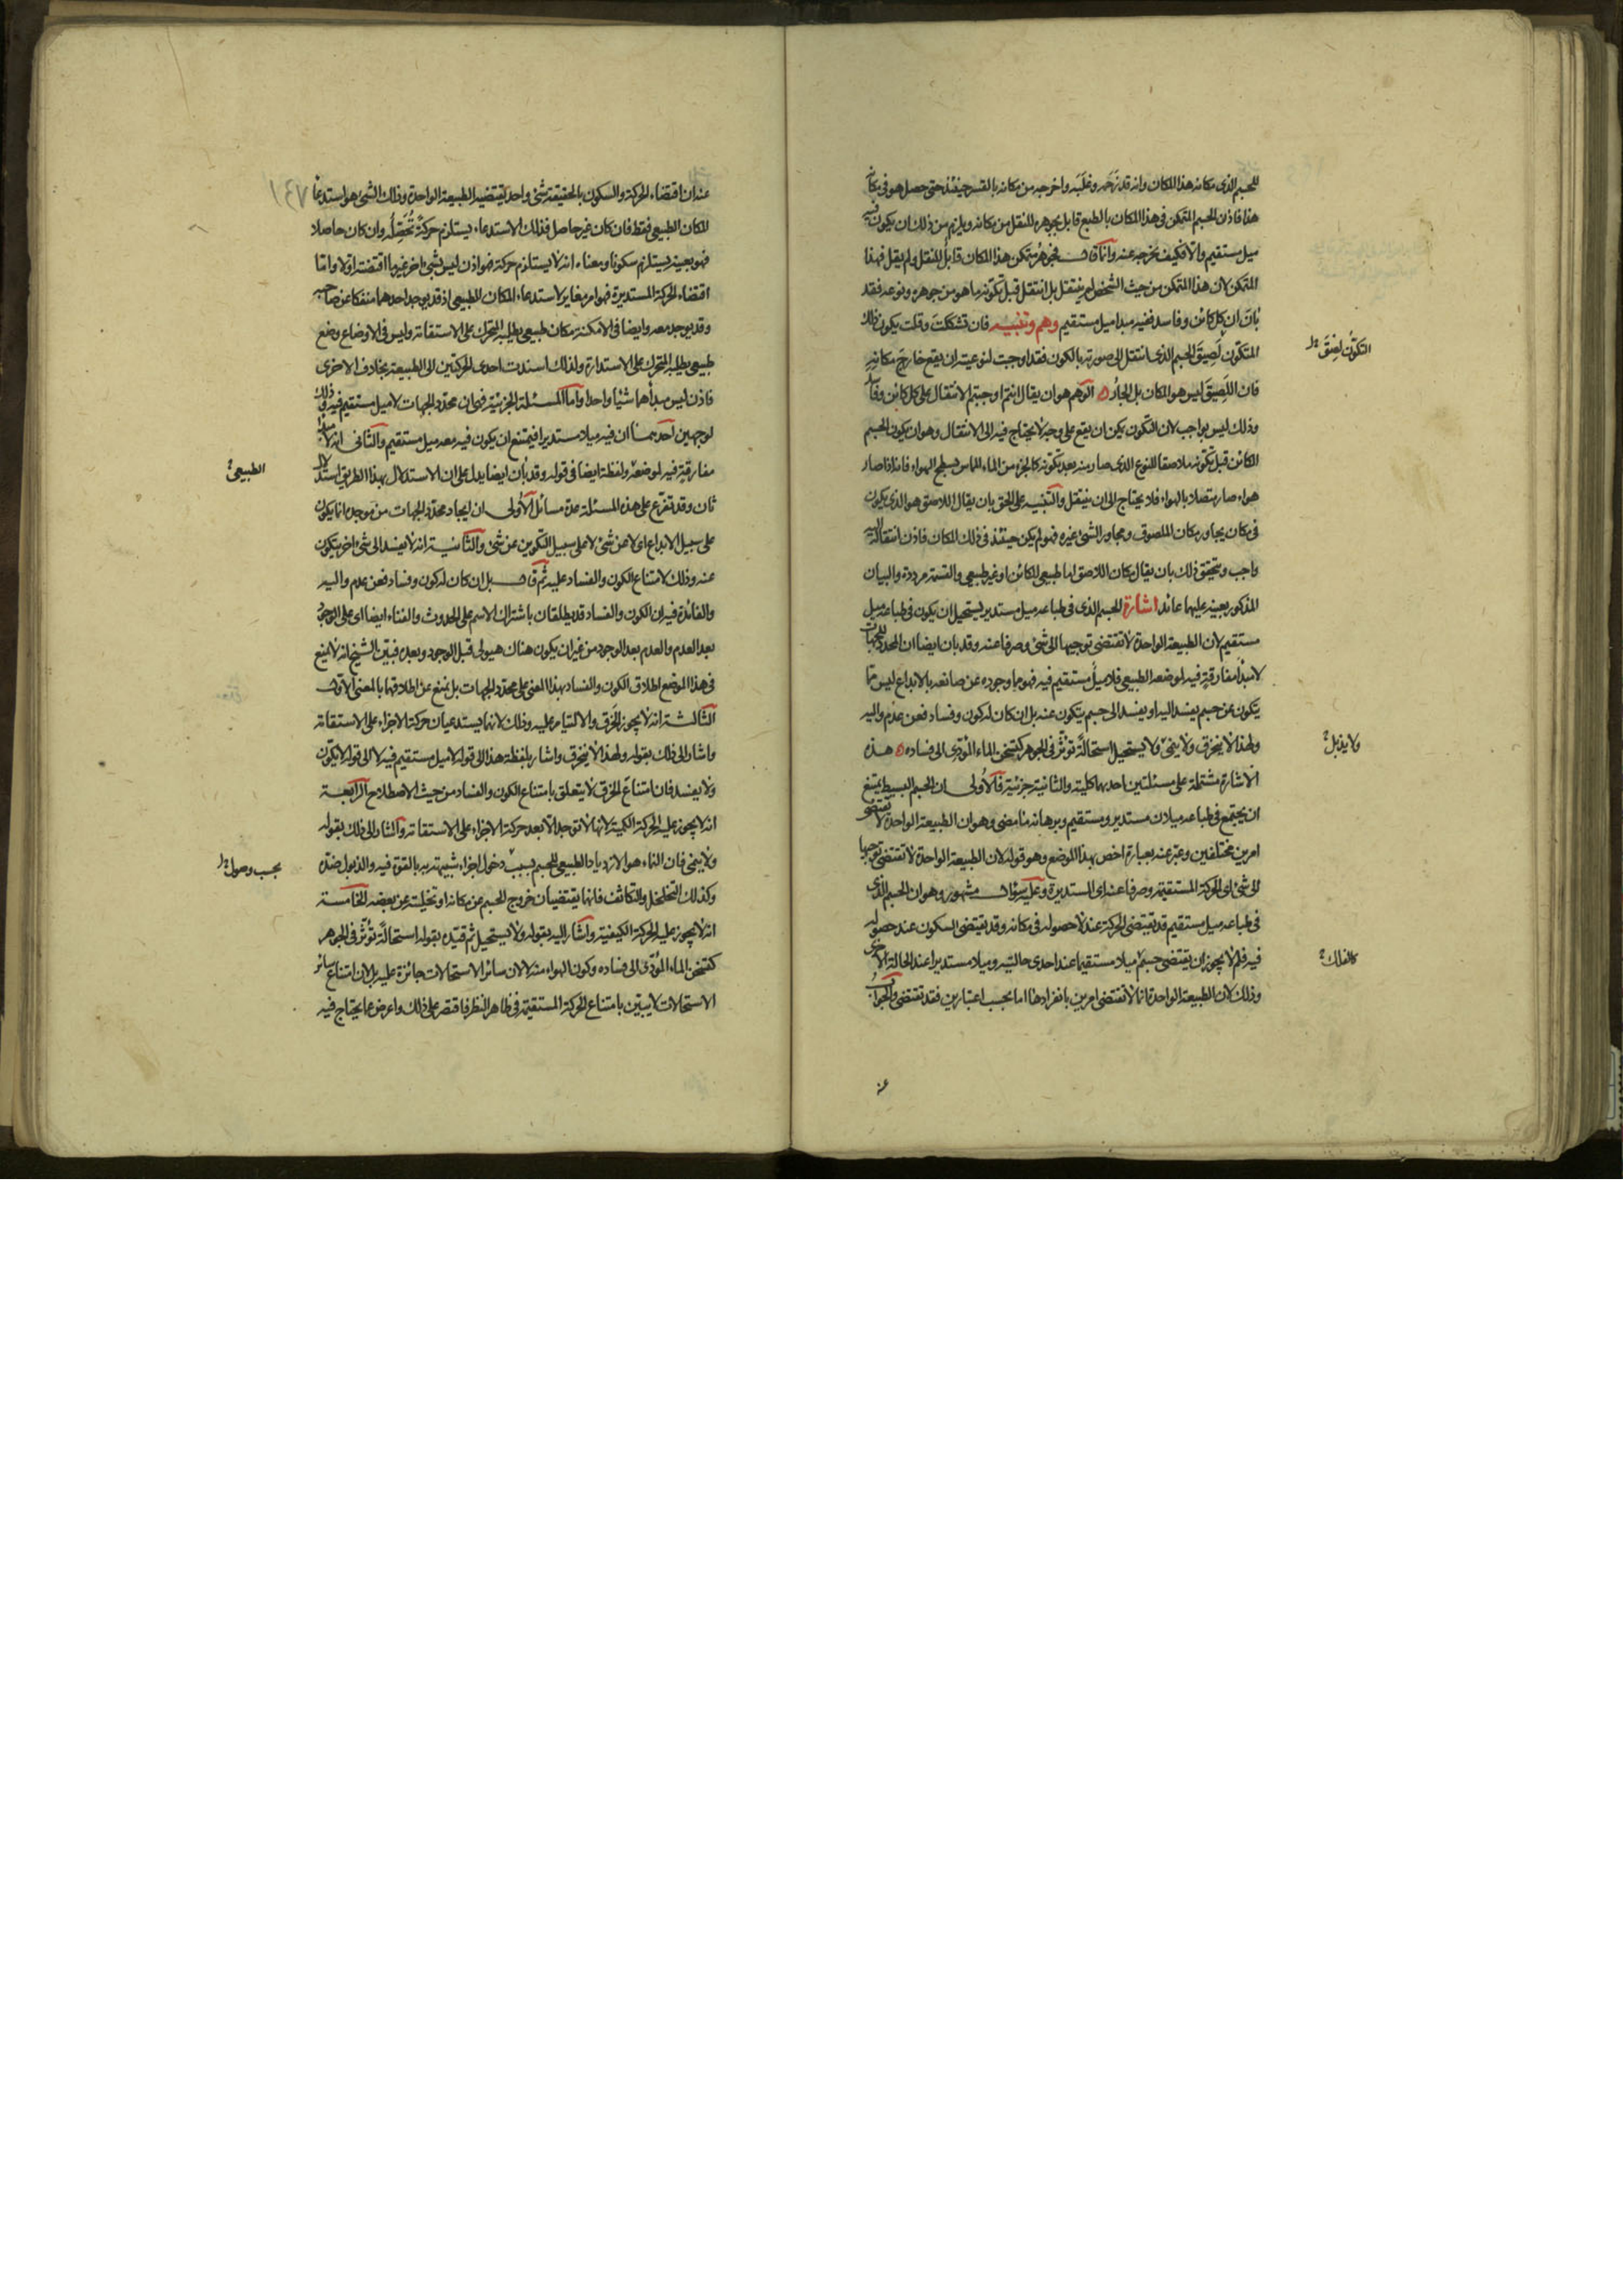 للجسم الذى مكانه هذا المكان وانه قد زحمه وغلبه واخرجه من مكانه بالقسر حينئذ حتى حصل هو فى مكان
هذا فاذن الجسم المتمكن فى هذا المكان بالطبع قابل بجوهره للنقل من مكانه ويلزم من ذلك ان يكون فيه
ميل مستقيم والا فكيف يخرجه عنه وانما قال فجوهر متمكن هذا المكان قابل للنقل ولم يقل فهذا
المتمكن لان هذا المتمكن من حيث الشخص لم ينتقل بل انتقل قبل تكونه ما هو من جوهره ونوعه فقد
بان ان كل كائن وفاسد ففيه مبدا ميل مستقيم وهم وتنبيه فان تشككت وقلت يكون ذلك
المتكون لصيق الجسم الذى انتقل الى صورته بالكون فقد اوجبت لنوعيته ان يقع خارج مكانه
التكون لصيق
فان اللصيق ليس هو المكان بل الجار الوهم هو ان يقال انتم اوجبتم الانتقال على كل كائن وفاسد
وذلك ليس بواجب لان التكون يمكن ان يقع على وجه لا يحتاج فيه الى الانتقال وهو ان يكون الجسم
الكائن قبل تكونه ملاصقا للنوع الذى صار منه بعد تكونه كالجزء من الماء المماس بسطح الهواء فانه اذا صار
هواء صار متصلا بالهواء فلا يحتاج الى ان ينتقل والتنبيه على الحق بان يقال اللاصق هو الذى يكون
فى مكان يجاور مكان الملصوق ومجاور الشئ غيره فهو لم يكن حينئذ فى ذلك المكان فاذن انتقاله اليه
واجب وتحقيق ذلك بان يقال مكان اللاصق اما طبيعى للكائن او غير طبيعى والقسمة مرددة والبيان
المذكور بعينه عليهما عائد اشارة الجسم الذى فى طباعه ميل مستدير يستحيل ان يكون فى طباعه ميل
مستقيم لان الطبيعة الواحدة لا تقتضى توجيها الى شئ وصرفا عنه وقد بان ايضا ان المحدد للجهات
لا مبدأ مفارقة فيه لموضعه الطبيعى فلا ميل مستقيم فيه فهو ما وجوده عن صانعه بالابداع ليس مما
يتكون عن جسم يفسد اليه او يفسد الى جسم يتكون عنه بل ان كان له كون وفساد فعن عدم واليه
ولهذا لا ينخرق ولا ينمى ولا يستحيل استحالة تؤثر فى الجوهر كتسخن الماء المؤدى الى فساده هذه
ولا يذبل
الاشارة مشتملة على مسئلتين احدهما كلية والثانية جزئية فالاولى ان الجسم البسيط يمتنع
ان يجتمع فى طباعه ميلان مستدير ومستقيم وبرهانه ما مضى وهو ان الطبيعة الواحدة لا تقتضى
امرين مختلفين وعبر عنه بعبارة اخص بهذا الموضع وهو قوله لان الطبيعة الواحدة لا تقتضى توجها
الى شئ اى الحركة المستقيمة وصرفا عنه اى المستديرة وعليه سؤال مشهور وهو ان الجسم الذى
فى طباعه ميل مستقيم قد يقتضى الحركة عند لا حصوله فى مكانه وقد يقتضى السكون عند حصوله
فيه فلم لا يجوز ان يقتضى جسم ميلا مستقيما عند احدى حالتيه وميلا مستديرا عند الحالة الاخرى
كالفلك
وذلك لان الطبيعة الواحدة انما لا تقتضى امرين بانفرادها اما بحسب اعتبارين فقد تقتضى والجواب
عنه
١٤٧
عنه ان اقتضاء الحركة والسكون بالحقيقة شئ واحد تقتضيه الطبيعة الواحدة وذلك الشئ هو استدعاء
المكان الطبيعى فقط فان كان غير حاصل فذلك الاستدعاء يستلزم حركة تحصله وان كان حاصلا
فهو بعينه يستلزم سكونا ومعناه انه لا يستلزم حركة فهو اذن ليس بشئ اخر غير ما اقتضته اولا واما
اقتضاء الحركة المستديرة فهو امر مغاير لاستدعاء المكان الطبيعى اذ قد يوجد احدهما منفكا عن صاحبه
وقد يوجد معه وايضا فى الامكنة مكان طبيعى يطلبه المتحرك على الاستقامة وليس فى الاوضاع وضع
طبيعى يطلبه المتحرك على الاستدارة ولذلك اسندت احدى الحركتين الى الطبيعة بخلاف الاخرى
فاذن ليس مبدأهما شيئا واحدا واما المسئلة الجزئية فهى ان محدد الجهات لا ميل مستقيم فيه وذلك
لوجهين احدهما ان فيه ميلا مستديرا فيمتنع ان يكون فيه معه ميل مستقيم والثانى انه لا مبدأ
مفارقة فيه لموضعه ولفظة ايضا فى قوله وقد بان ايضا يدل على ان الاستدلال بهذا الطريق استدلال
الطبيعى
ثان وقد تفرع على هذه المسئلة عدة مسائل الاولى ان ايجاد محدد الجهات من موجده انما يكون
على سبيل الابداع اى لا عن شئ لا على سبيل التكوين عن شئ والثانية انه لا يفسد الى شئ اخر يتكون
عنه وذلك لامتناع الكون والفساد عليه ثم قال بل ان كان له كون وفساد فعن عدم واليه
والفائدة فيه ان الكون والفساد قد يطلقان باشتراك الاسم على الحدوث والفناء ايضا اى على الوجود
بعد العدم والعدم بعد الوجود من غير ان يكون هناك هيولى قبل الوجود وبعده فبين الشيخ انه لا يمنع
فى هذا الموضع اطلاق الكون والفساد بهذا المعنى على محدد الجهات بل يمنع عن اطلاقهما بالمعنى الاول
الثالثة انه لا يجوز الخرق والالتيام عليه وذلك لانهما يستدعيان حركة الاجزاء على الاستقامة
واشار الى ذلك بقوله ولهذا لا ينخرق واشار بلفظة هذا الى قوله لا ميل مستقيم فيه لا الى قوله لا يتكون
ولا يفسد فان امتناع الخرق لا يتعلق بامتناع الكون والفساد من حيث الاصطلاح الرابعة
انه لا يجوز عليه الحركة الكمية لانها لا توجد الا بعد حركة الاجزاء على الاستقامة واشار الى ذلك بقوله
ولا ينمى فان النماء هو الازدياد الطبيعى للجسم بسبب دخول اجزاء شبيهة به بالقوة فيه والذبول ضده
بحسب وصول
وكذلك التخلخل والتكاثف فانهما يقتضيان خروج الجسم عن مكانه او تخليته عن بعضه الخامسة
انه لا يجوز عليه الحركة الكيفية واشار اليه بقوله ولا يستحيل ثم قيده بقوله استحالة تؤثر فى الجوهر
كتسخن الماء المؤدى الى فساده وكون الهواء منه لا لان سائر الاستحالات جائزة عليه بل لان امتناع سائر
الاستحالات لا يتبين بامتناع الحركة المستقيمة فى ظاهر النظر فاقتصر على ذلك واعرض عما يحتاج فيه